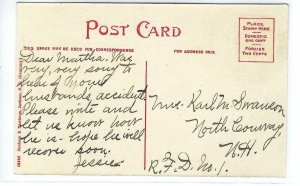 POST CARD
THIS SPACE MAY BE USED FOR CORRESPONDENCE
FOR ADDRESS ONLY
PLACE
STAMP HERE
DOMESTIC
ONE CENT
FOREIGN
TWO CENTS
Dear Martha. Was
very, very sorry to
hear of your
husbands accident.
Please write and
let us know how
he is - hope he will
recover soon.
Jessie
Mrs. Karl M. Swanson
North Conway,
N.H.
R.F.D. No. 1.